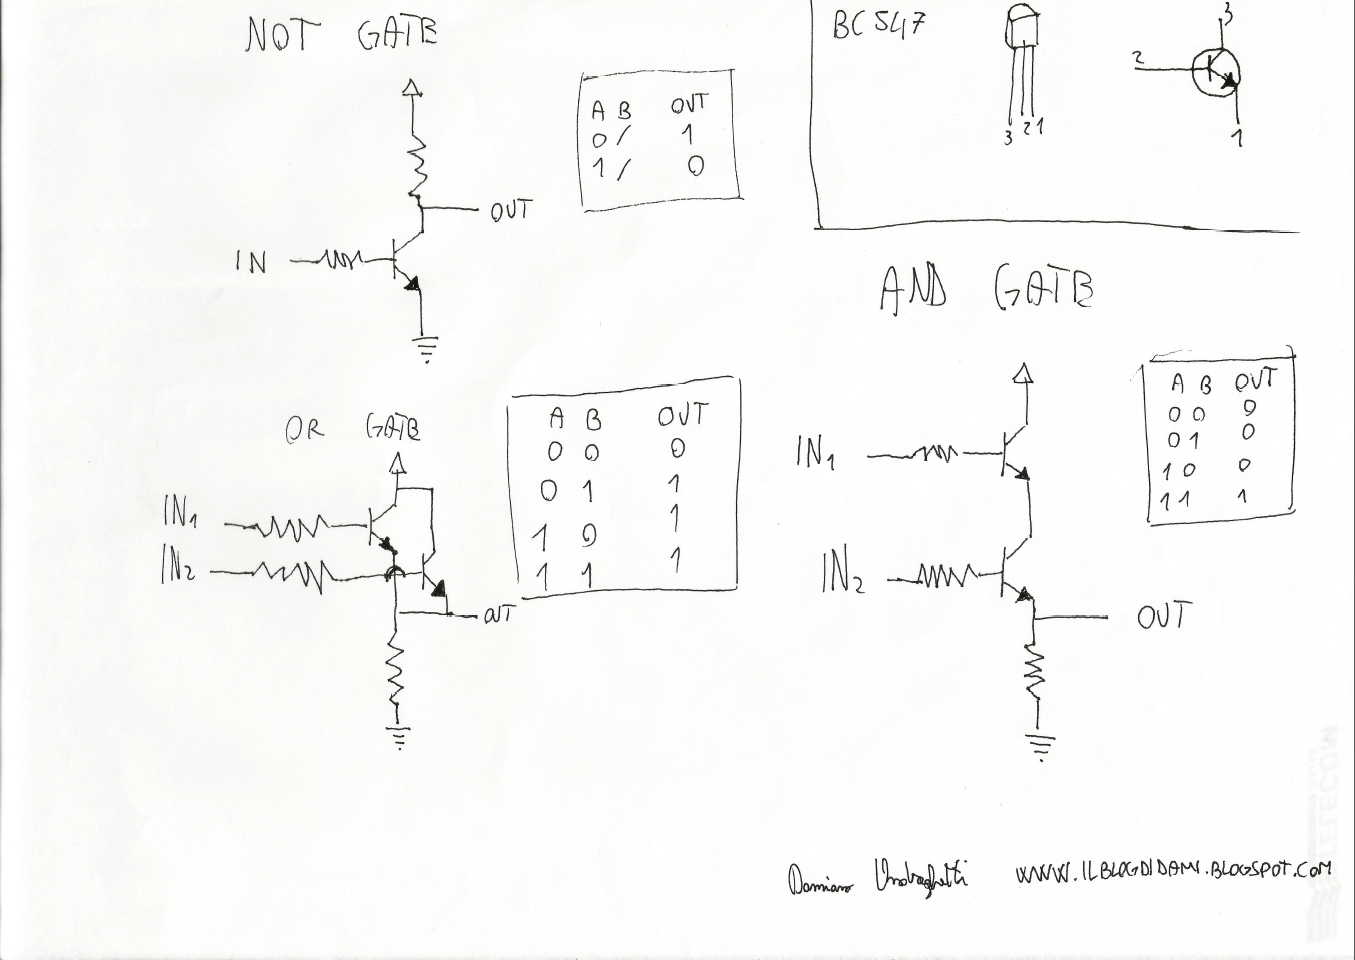 NOT GATE
A B OUT
0 / 1
1 / 0
OUT
IN
BC547
3 2 1
3
2
1
OR GATE
IN1
IN2
OUT
A B OUT
0 0 0
0 1 1
1 0 1
1 1 1
AND GATE
IN1
IN2
OUT
A B OUT
0 0 0
0 1 0
1 0 0
1 1 1
Damiano
WWW.ILBLOGDIDAMI.BLOGSPOT.COM
TELECOM